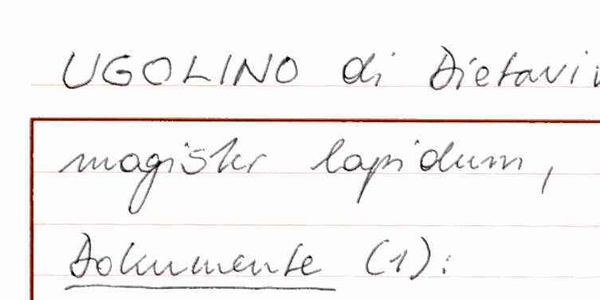 UGOLINO di
magister lapidum,
Dokumente (1):